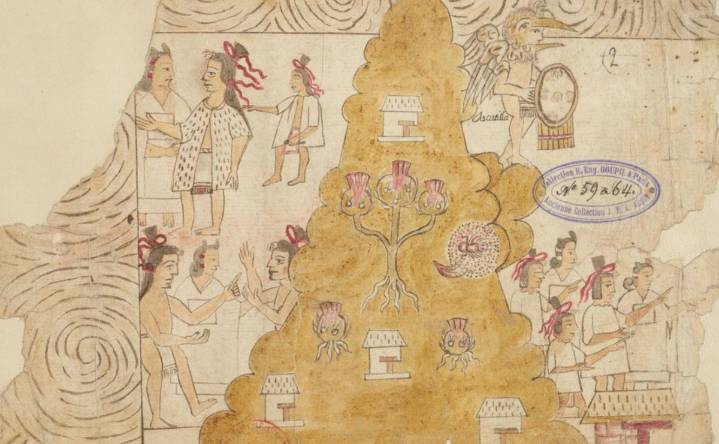 2
Collection E. Eug. GOUPIL à Paris
Nº 59 à 64.
Ancienne Collection J. M. A. AUBIN